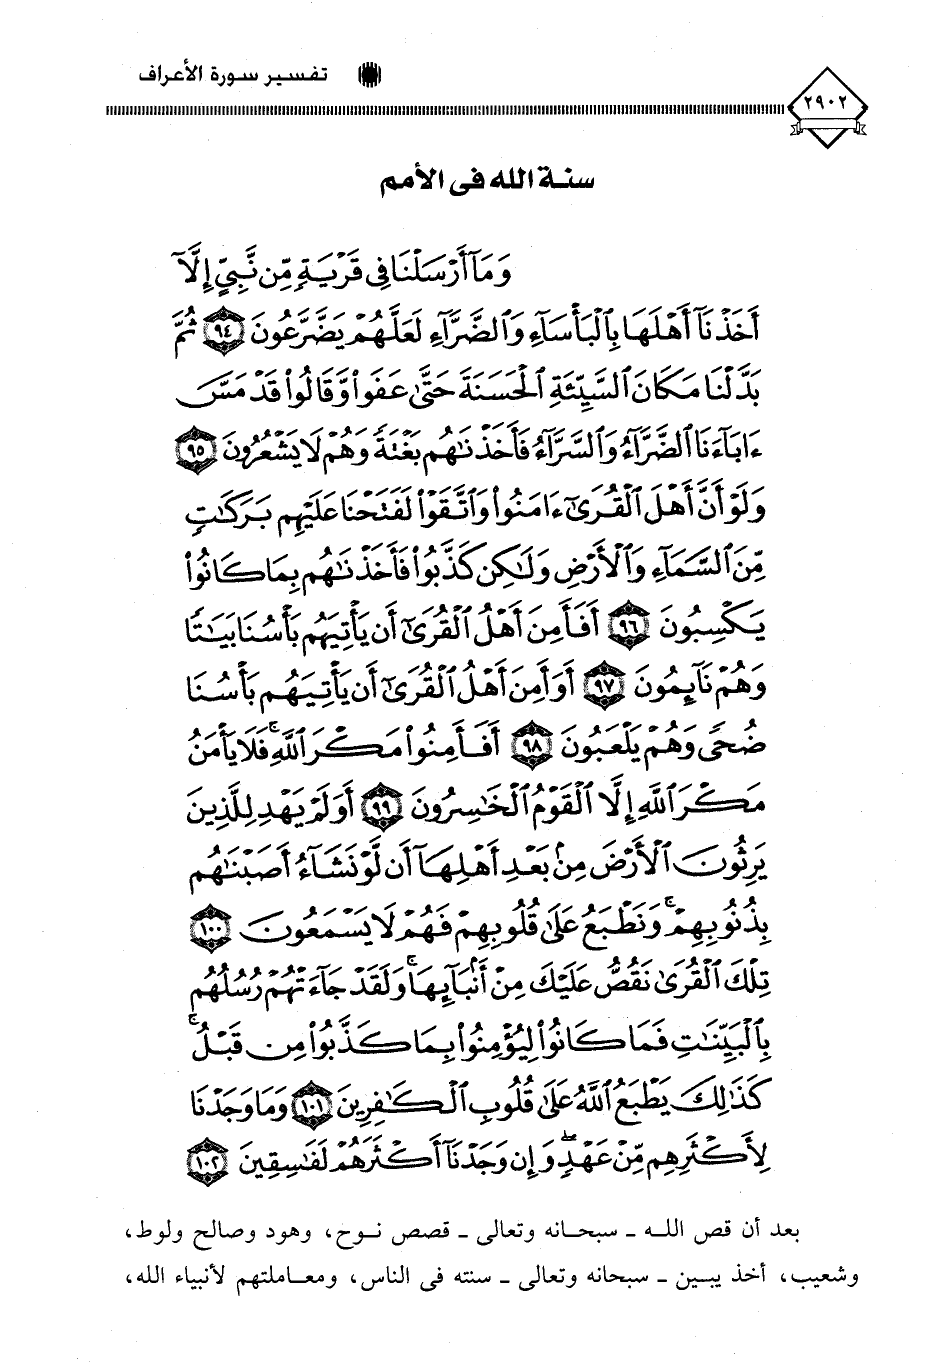 تفسير سورة الأعراف
٢٩٠٢
سنة الله فى الأمم
وَمَآ أَرْسَلْنَا فِى قَرْيَةٍ مِّن نَّبِىٍّ إِلَّآ
أَخَذْنَآ أَهْلَهَا بِٱلْبَأْسَآءِ وَٱلضَّرَّآءِ لَعَلَّهُمْ يَضَّرَّعُونَ ٩٤ ثُمَّ
بَدَّلْنَا مَكَانَ ٱلسَّيِّئَةِ ٱلْحَسَنَةَ حَتَّىٰ عَفَوا۟ وَّقَالُوا۟ قَدْ مَسَّ
ءَابَآءَنَا ٱلضَّرَّآءُ وَٱلسَّرَّآءُ فَأَخَذْنَٰهُم بَغْتَةً وَهُمْ لَا يَشْعُرُونَ ٩٥
وَلَوْ أَنَّ أَهْلَ ٱلْقُرَىٰٓ ءَامَنُوا۟ وَٱتَّقَوْا۟ لَفَتَحْنَا عَلَيْهِم بَرَكَٰتٍ
مِّنَ ٱلسَّمَآءِ وَٱلْأَرْضِ وَلَٰكِن كَذَّبُوا۟ فَأَخَذْنَٰهُم بِمَا كَانُوا۟
يَكْسِبُونَ ٩٦ أَفَأَمِنَ أَهْلُ ٱلْقُرَىٰٓ أَن يَأْتِيَهُم بَأْسُنَا بَيَٰتًا
وَهُمْ نَآئِمُونَ ٩٧ أَوَأَمِنَ أَهْلُ ٱلْقُرَىٰٓ أَن يَأْتِيَهُم بَأْسُنَا
ضُحًى وَهُمْ يَلْعَبُونَ ٩٨ أَفَأَمِنُوا۟ مَكْرَ ٱللَّهِ ۚ فَلَا يَأْمَنُ
مَكْرَ ٱللَّهِ إِلَّا ٱلْقَوْمُ ٱلْخَٰسِرُونَ ٩٩ أَوَلَمْ يَهْدِ لِلَّذِينَ
يَرِثُونَ ٱلْأَرْضَ مِنۢ بَعْدِ أَهْلِهَآ أَن لَّوْ نَشَآءُ أَصَبْنَٰهُم
بِذُنُوبِهِمْ ۚ وَنَطْبَعُ عَلَىٰ قُلُوبِهِمْ فَهُمْ لَا يَسْمَعُونَ ١٠٠
تِلْكَ ٱلْقُرَىٰ نَقُصُّ عَلَيْكَ مِنْ أَنۢبَآئِهَا ۚ وَلَقَدْ جَآءَتْهُمْ رُسُلُهُم
بِٱلْبَيِّنَٰتِ فَمَا كَانُوا۟ لِيُؤْمِنُوا۟ بِمَا كَذَّبُوا۟ مِن قَبْلُ ۚ
كَذَٰلِكَ يَطْبَعُ ٱللَّهُ عَلَىٰ قُلُوبِ ٱلْكَٰفِرِينَ ١٠١ وَمَا وَجَدْنَا
لِأَكْثَرِهِم مِّنْ عَهْدٍ ۖ وَإِن وَجَدْنَآ أَكْثَرَهُمْ لَفَٰسِقِينَ ١٠٢
بعد أن قص الله ـ سبحانه وتعالى ـ قصص نوح، وهود وصالح ولوط،
وشعيب، أخذ يبين ـ سبحانه وتعالى ـ سنته فى الناس، ومعاملتهم لأنبياء الله،